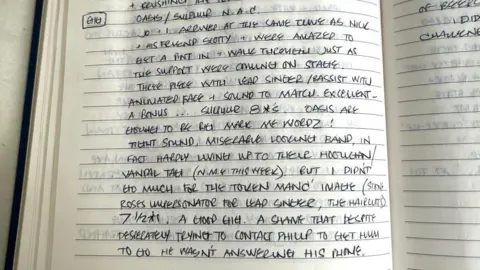 + RUSHING FOR THE
OASIS / SULPHUR N.A.C.
GIG
JO + I ARRIVED AT THE SAME TIME AS NICK
+ HIS FRIEND SCOTTY + WERE AMAZED TO
GET A PINT IN + WALK THROUGH JUST AS
THE SUPPORT WERE COMING ON STAGE.
THREE PIECE WITH LEAD SINGER / BASSIST WITH
ANIMATED FACE + SOUND TO MATCH. EXCELLENT -
A BONUS ... SULPHUR 8*s OASIS ARE
GOING TO BE BIG MARK ME WORDZ!
TIGHT SOUND, MISERABLE LOOKING BAND, IN
FACT HARDLY LIVING UP TO THEIR HOOLIGAN /
VANDAL TAG (N.M.E THIS WEEK). BUT I DIDN'T
GO MUCH FOR THE TOKEN 'MANC' IMAGE (STONE
ROSES IMPERSONATOR FOR LEAD SINGER, THE HAIRCUTS)
7 1/2*s. A GOOD GIG. A SHAME THAT DESPITE
DESPERATELY TRYING TO CONTACT PHILIP TO GET HIM
TO GO HE WASN'T ANSWERING HIS PHONE.
OF
I DID